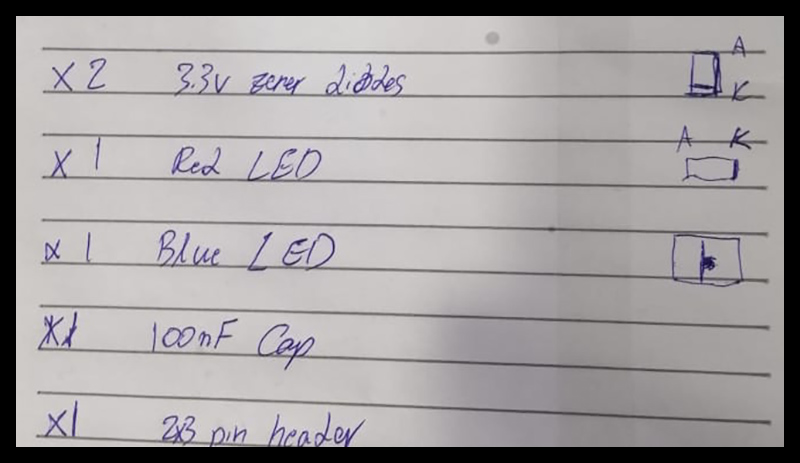 x2 3.3v zener diodes A K
x1 Red LED A K
x1 Blue LED
x1 100nF Cap
x1 2x3 pin header